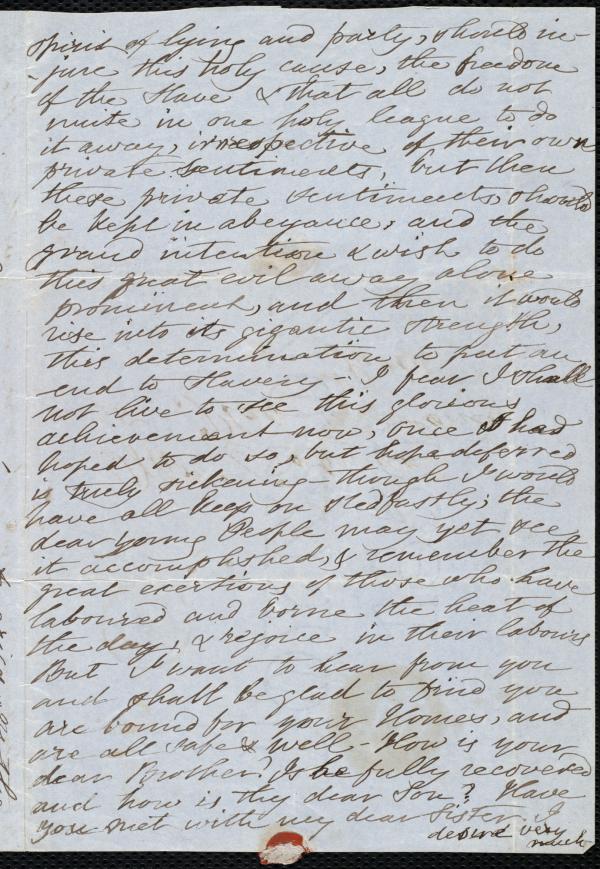 spirit of lying and party, should in-
-jure this holy cause, the freedom
of the Slave & that all do not
unite in one holy league to do
it away, irrespective of their own
private sentiments, but then
these private sentiments, should
be kept in abeyance, and the
grand intention & wish to do
this great evil away alone
prominent, and then it would
rise into its gigantic strength,
this determination to put an
end to Slavery - I fear I shall
not live to see this glorious
achievement now, once I had
hoped to do so, but hope deferred
is truly sickening - though I would
have all keep on stedfastly; the
dear young People may yet see
it accomplished, & remember the
great exertions of those who have
laboured and borne the heat of
the day, & rejoice in their labours
But I want to hear from you
and shall be glad to find you
are bound for your Homes, and
are all safe & well - How is your
dear Brother? Is he fully recovered
and how is thy dear Son? Have
you met with my dear Sister. I
desire very
much